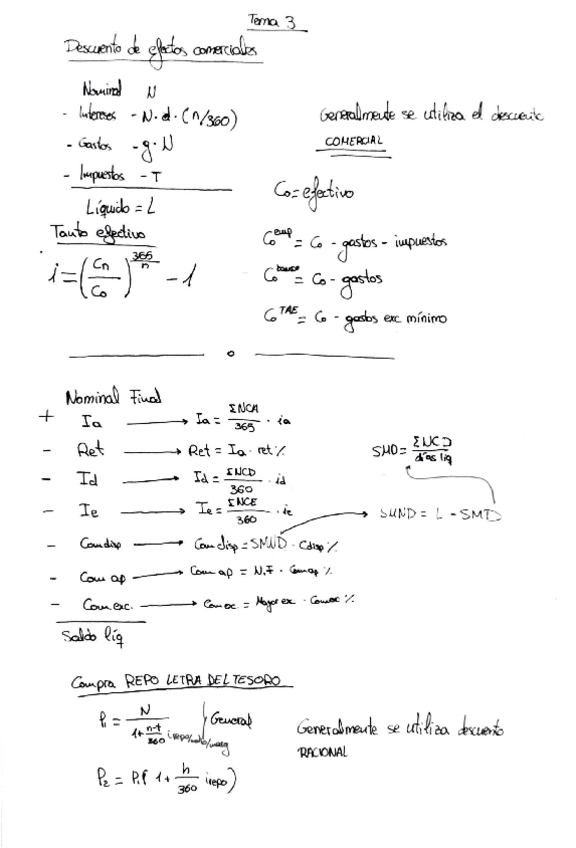 Tema 3
Descuento de efectos comerciales
Nominal N
- Intereses - N·d·(n/360)
- Gastos - g·N
- Impuestos - T
Líquido = L
Generalmente se utiliza el descuento
COMERCIAL
Co = efectivo
Tanto efectivo
i = (Cn/Co)^(365/n) - 1
Co^emp = Co - gastos - impuestos
Co^banco = Co - gastos
Co^TAE = Co - gastos exc mínimo
o
Nominal Final
+ Ia → Ia = ΣNCA/365 · ia
- Ret → Ret = Ia · ret%
- Id → Id = ΣNCD/360 · id
- Ie → Ie = ΣNCE/360 · ie
- Com disp → Com disp = SMND · Cdisp%
- Com ap → Com ap = N.F · Com ap %
- Com exc. → Com exc = Mayor ex · Com exc %
Saldo líq
SMD = ΣNCD/días liq
SMND = L - SMD
Compra REPO LETRA DEL TESORO
P1 = N/(1 + n-t/360 i repo/) General
P2 = P1 ( 1 + h/360 irepo)
Generalmente se utiliza descuento
RACIONAL